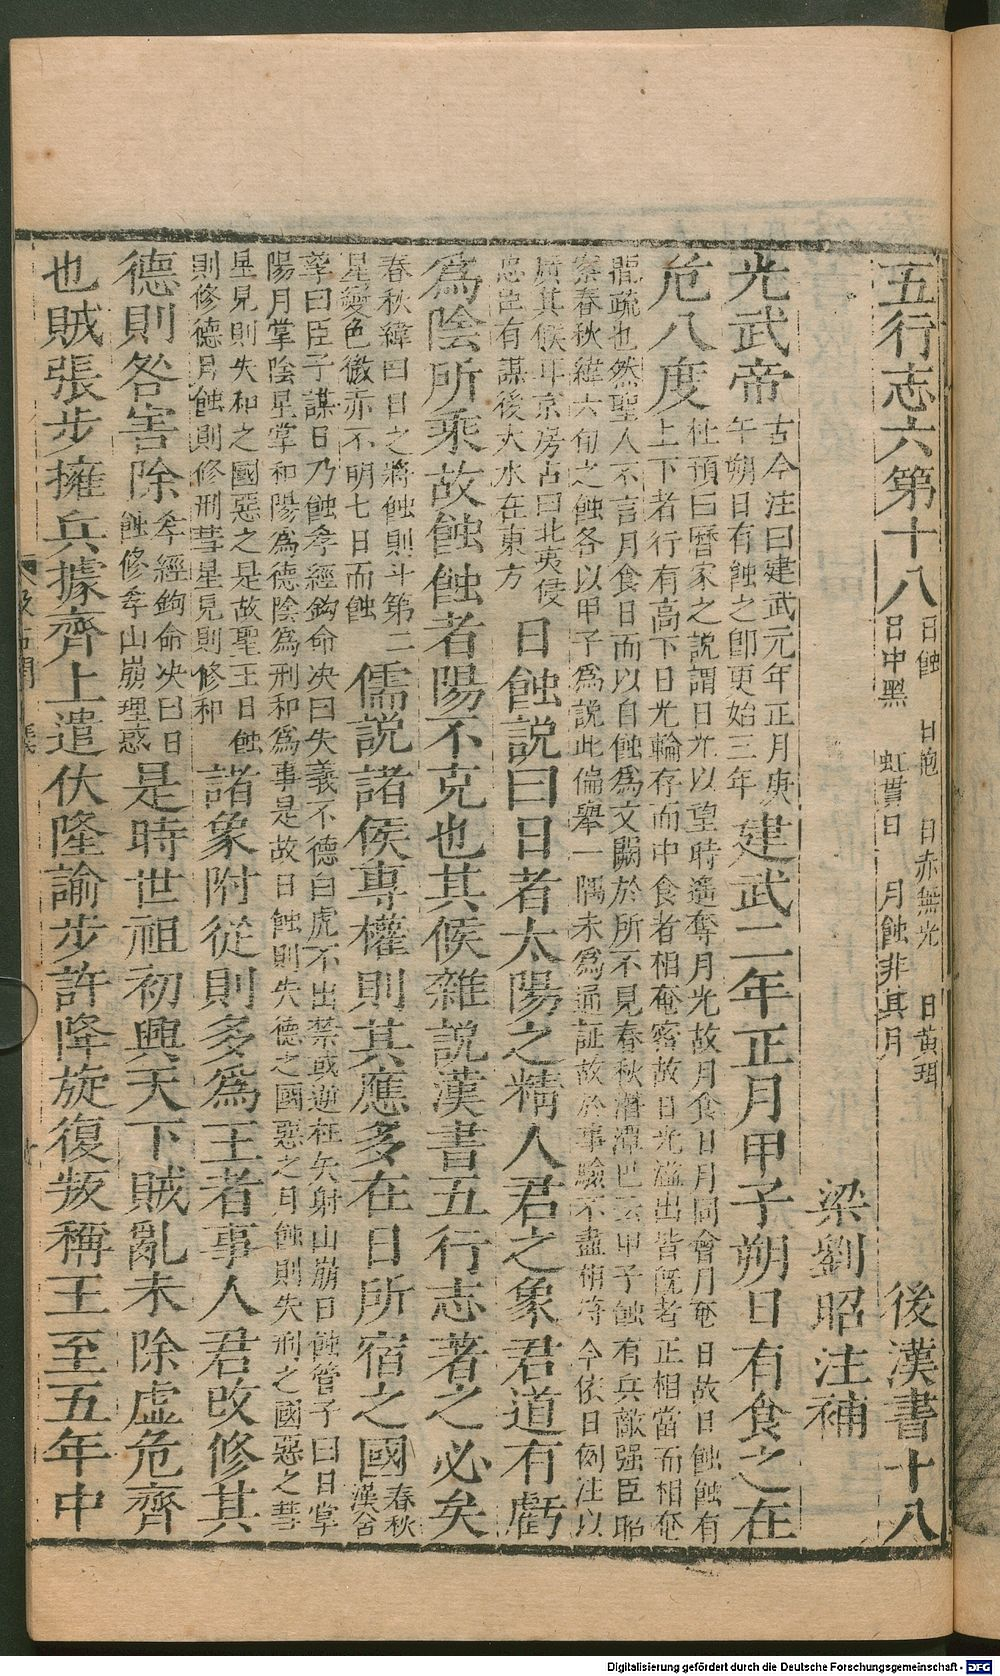 五行志六第十八 日蝕 日抱 日赤無光 日黃珥 日中黑 虹貫日 月蝕非其月 後漢書十八
梁劉昭注補
光武帝 古今注曰建武元年正月庚午朔日有蝕之卽更始三年 建武二年正月甲子朔日有食之在
危八度 杜預曰曆家之說謂日光以望時遙奪月光故月食日月同會月奄日故日蝕蝕有上下者行有高下日光輪存而中食者相奄密故日光溢出皆旣者正相當而相奄
間疏也然聖人不言月食日而以自蝕爲文闕於所不見春秋潛潭巴云甲子蝕有兵敵强臣昭案春秋緯六旬之蝕各以甲子爲說此偏舉一隅未爲通証故於事驗不盡相符今依日例注以
廣其候耳京房占曰北夷侵忠臣有謀後大水在東方 日蝕說曰日者太陽之精人君之象君道有虧
爲陰所乘故蝕蝕者陽不克也其候雜說漢書五行志著之必矣
春秋緯曰日之將蝕則斗第二星變色微赤不明七日而蝕 儒說諸侯專權則其應多在日所宿之國 春秋漢含
孳曰臣子謀日乃蝕孝經鉤命決曰失義不德白虎不出禁或逆枉矢射山崩日蝕管子曰日掌陽月掌陰星掌和陽爲德陰爲刑和爲事是故日蝕則失德之國惡之月蝕則失刑之國惡之彗
星見則失和之國惡之是故聖王日蝕則修德月蝕則修刑彗星見則修和 諸象附從則多爲王者事人君改修其
德則咎害除 孝經鉤命決曰日蝕修孝山崩理惑 是時世祖初興天下賊亂未除虛危齊
也賊張步擁兵據齊上遣伏隆諭步許降旋復叛稱王至五年中
Digitalisierung gefördert durch die Deutsche Forschungsgemeinschaft - DFG